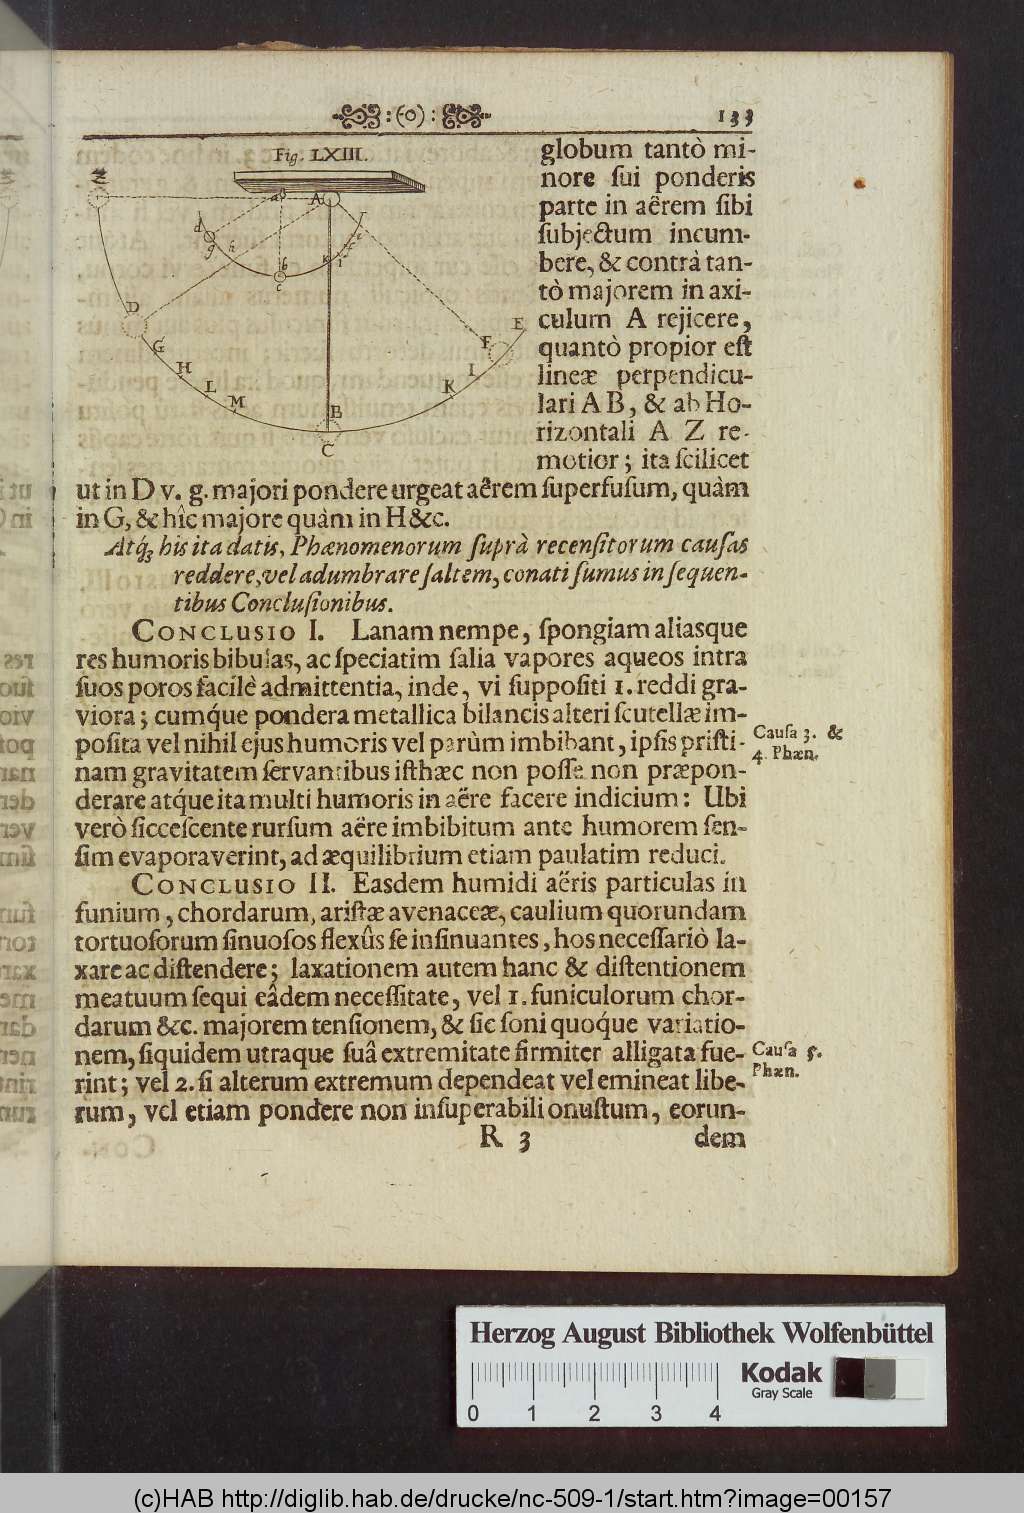 :(-o):
133
Fig. LXIII.
globum tantò mi-
nore ſui ponderis
parte in aërem ſibi
ſubjectum incum-
bere, & contrà tan-
tò majorem in axi-
culum A rejicere,
quantò propior eſt
lineæ perpendicu-
lari A B, & ab Ho-
rizontali A Z re-
motior; ita ſcilicet
ut in D v. g. majori pondere urgeat aêrem ſuperfuſum, quàm
in G, & hîc majore quàm in H &c.
Atq́; his ita datis, Phænomenorum ſuprà recenſitorum cauſas
reddere, vel adumbrare ſaltem, conati ſumus in ſequen-
tibus Concluſionibus.
CONCLUSIO I. Lanam nempe, ſpongiam aliasque
res humoris bibulas, ac ſpeciatim ſalia vapores aqueos intra
ſuos poros facilè admittentia, inde, vi ſuppoſiti 1. reddi gra-
viora; cumq́ue pondera metallica bilancis alteri ſcutellæ im-
poſita vel nihil ejus humoris vel parùm imbibant, ipſis priſti-
nam gravitatem ſervantibus iſthæc non poſſe non præpon-
derare atq́ue ita multi humoris in aëre facere indicium: Ubi
verò ſicceſcente rurſum aëre imbibitum ante humorem ſen-
ſim evaporaverint, ad æquilibrium etiam paulatim reduci.
Cauſa 3. &
4. Phæn.
CONCLUSIO II. Easdem humidi aëris particulas in
funium, chordarum, ariſtæ avenaceæ, caulium quorundam
tortuoſorum ſinuoſos flexûs ſe inſinuantes, hos neceſſariò la-
xare ac diſtendere; laxationem autem hanc & diſtentionem
meatuum ſequi eâdem neceſſitate, vel 1. funiculorum chor-
darum &c. majorem tenſionem, & ſic ſoni quoq́ue variatio-
nem, ſiquidem utraque ſuâ extremitate firmiter alligata fue-
rint; vel 2. ſi alterum extremum dependeat vel emineat libe-
rum, vel etiam pondere non inſuperabili onuſtum, eorun-
Cauſa 5.
Phæn.
R 3
dem
Z
A
a
d
g
h
b
c
K
i
D
G
H
L
M
B
C
K
I
F
E
Herzog August Bibliothek Wolfenbüttel
Kodak
Gray Scale
0 1 2 3 4
(c)HAB http://diglib.hab.de/drucke/nc-509-1/start.htm?image=00157